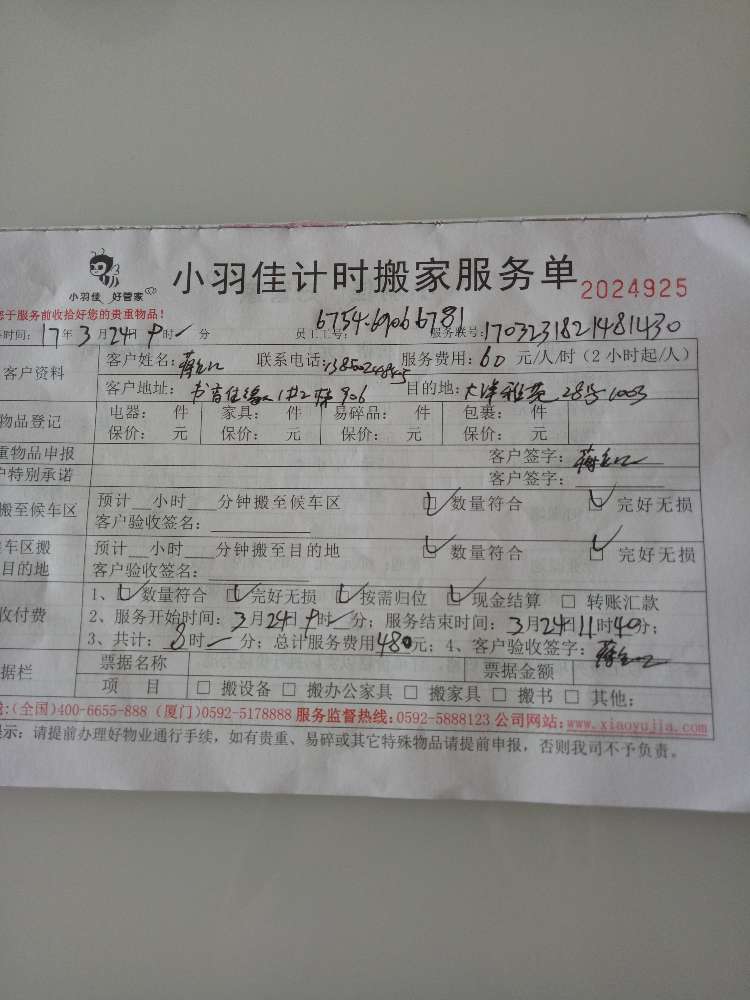 小羽佳 好管家
小羽佳计时搬家服务单 2024925
于服务前收拾好您的贵重物品!
6754.6906 6781
时间: 17年3月24日9时 分 员工工号: 服务联号: 1703231821481430
客户资料 客户姓名: 蒋 联系电话: 服务费用: 60 元/人/时(2小时起/人)
客户地址: 佳缘 906 目的地: 大 28号1003
物品登记 电器: 件 家具: 件 易碎品: 件 包裹: 件
保价: 元 保价: 元 保价: 元 保价: 元
重物品申报 客户签字: 蒋
户特别承诺 客户签字:
搬至候车区 预计__小时___分钟搬至候车区 数量符合 完好无损
客户验收签名:
车区搬 预计__小时___分钟搬至目的地 数量符合 完好无损
目的地 客户验收签名:
收付费 1、 数量符合 完好无损 按需归位 现金结算 □ 转账汇款
2、服务开始时间: 3月24日9时 分; 服务结束时间: 3月24日11时40分;
3、共计: 8时 分; 总计服务费用480元; 4、客户验收签字: 蒋
据栏 票据名称 票据金额
项 目 □ 搬设备 □ 搬办公家具 □ 搬家具 □ 搬书 □ 其他:
:(全国)400-6655-888 (厦门)0592-5178888 服务监督热线:0592-5888123 公司网站:www.xiaoyujia.com
示: 请提前办理好物业通行手续, 如有贵重、易碎或其它特殊物品请提前申报, 否则我司不予负责。